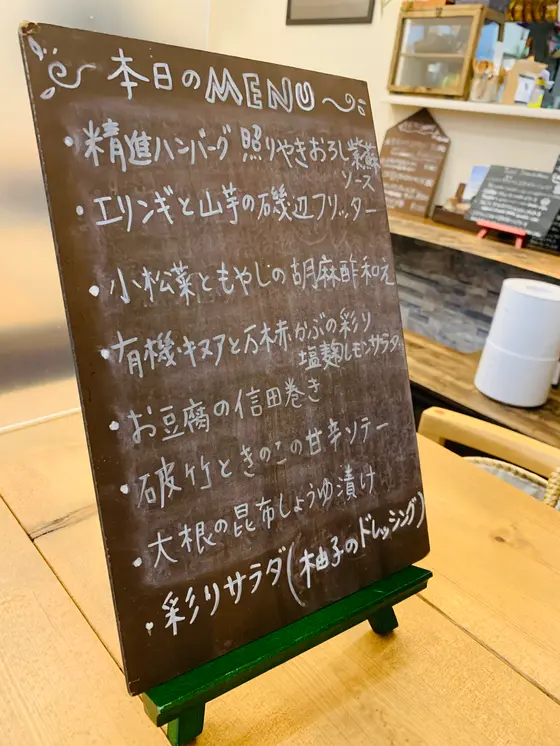 本日のMENU
・精進ハンバーグ 照りやきおろし紫蘇
ソース
・エリンギと山芋の磯辺フリッター
・小松菜ともやしの胡麻酢和え
・有機キヌアと万木赤かぶの彩り
塩麹レモンサラダ
・お豆腐の信田巻き
・破竹ときのこの甘辛ソテー
・大根の昆布しょうゆ漬け
・彩りサラダ(柚子のドレッシング)